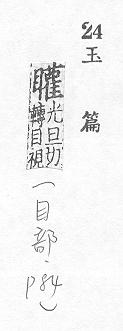 24
玉篇
矔
光旦切
轉目視
(目部.
P84)